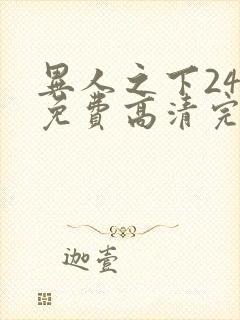 異人之下24
免費高清完
迦壹